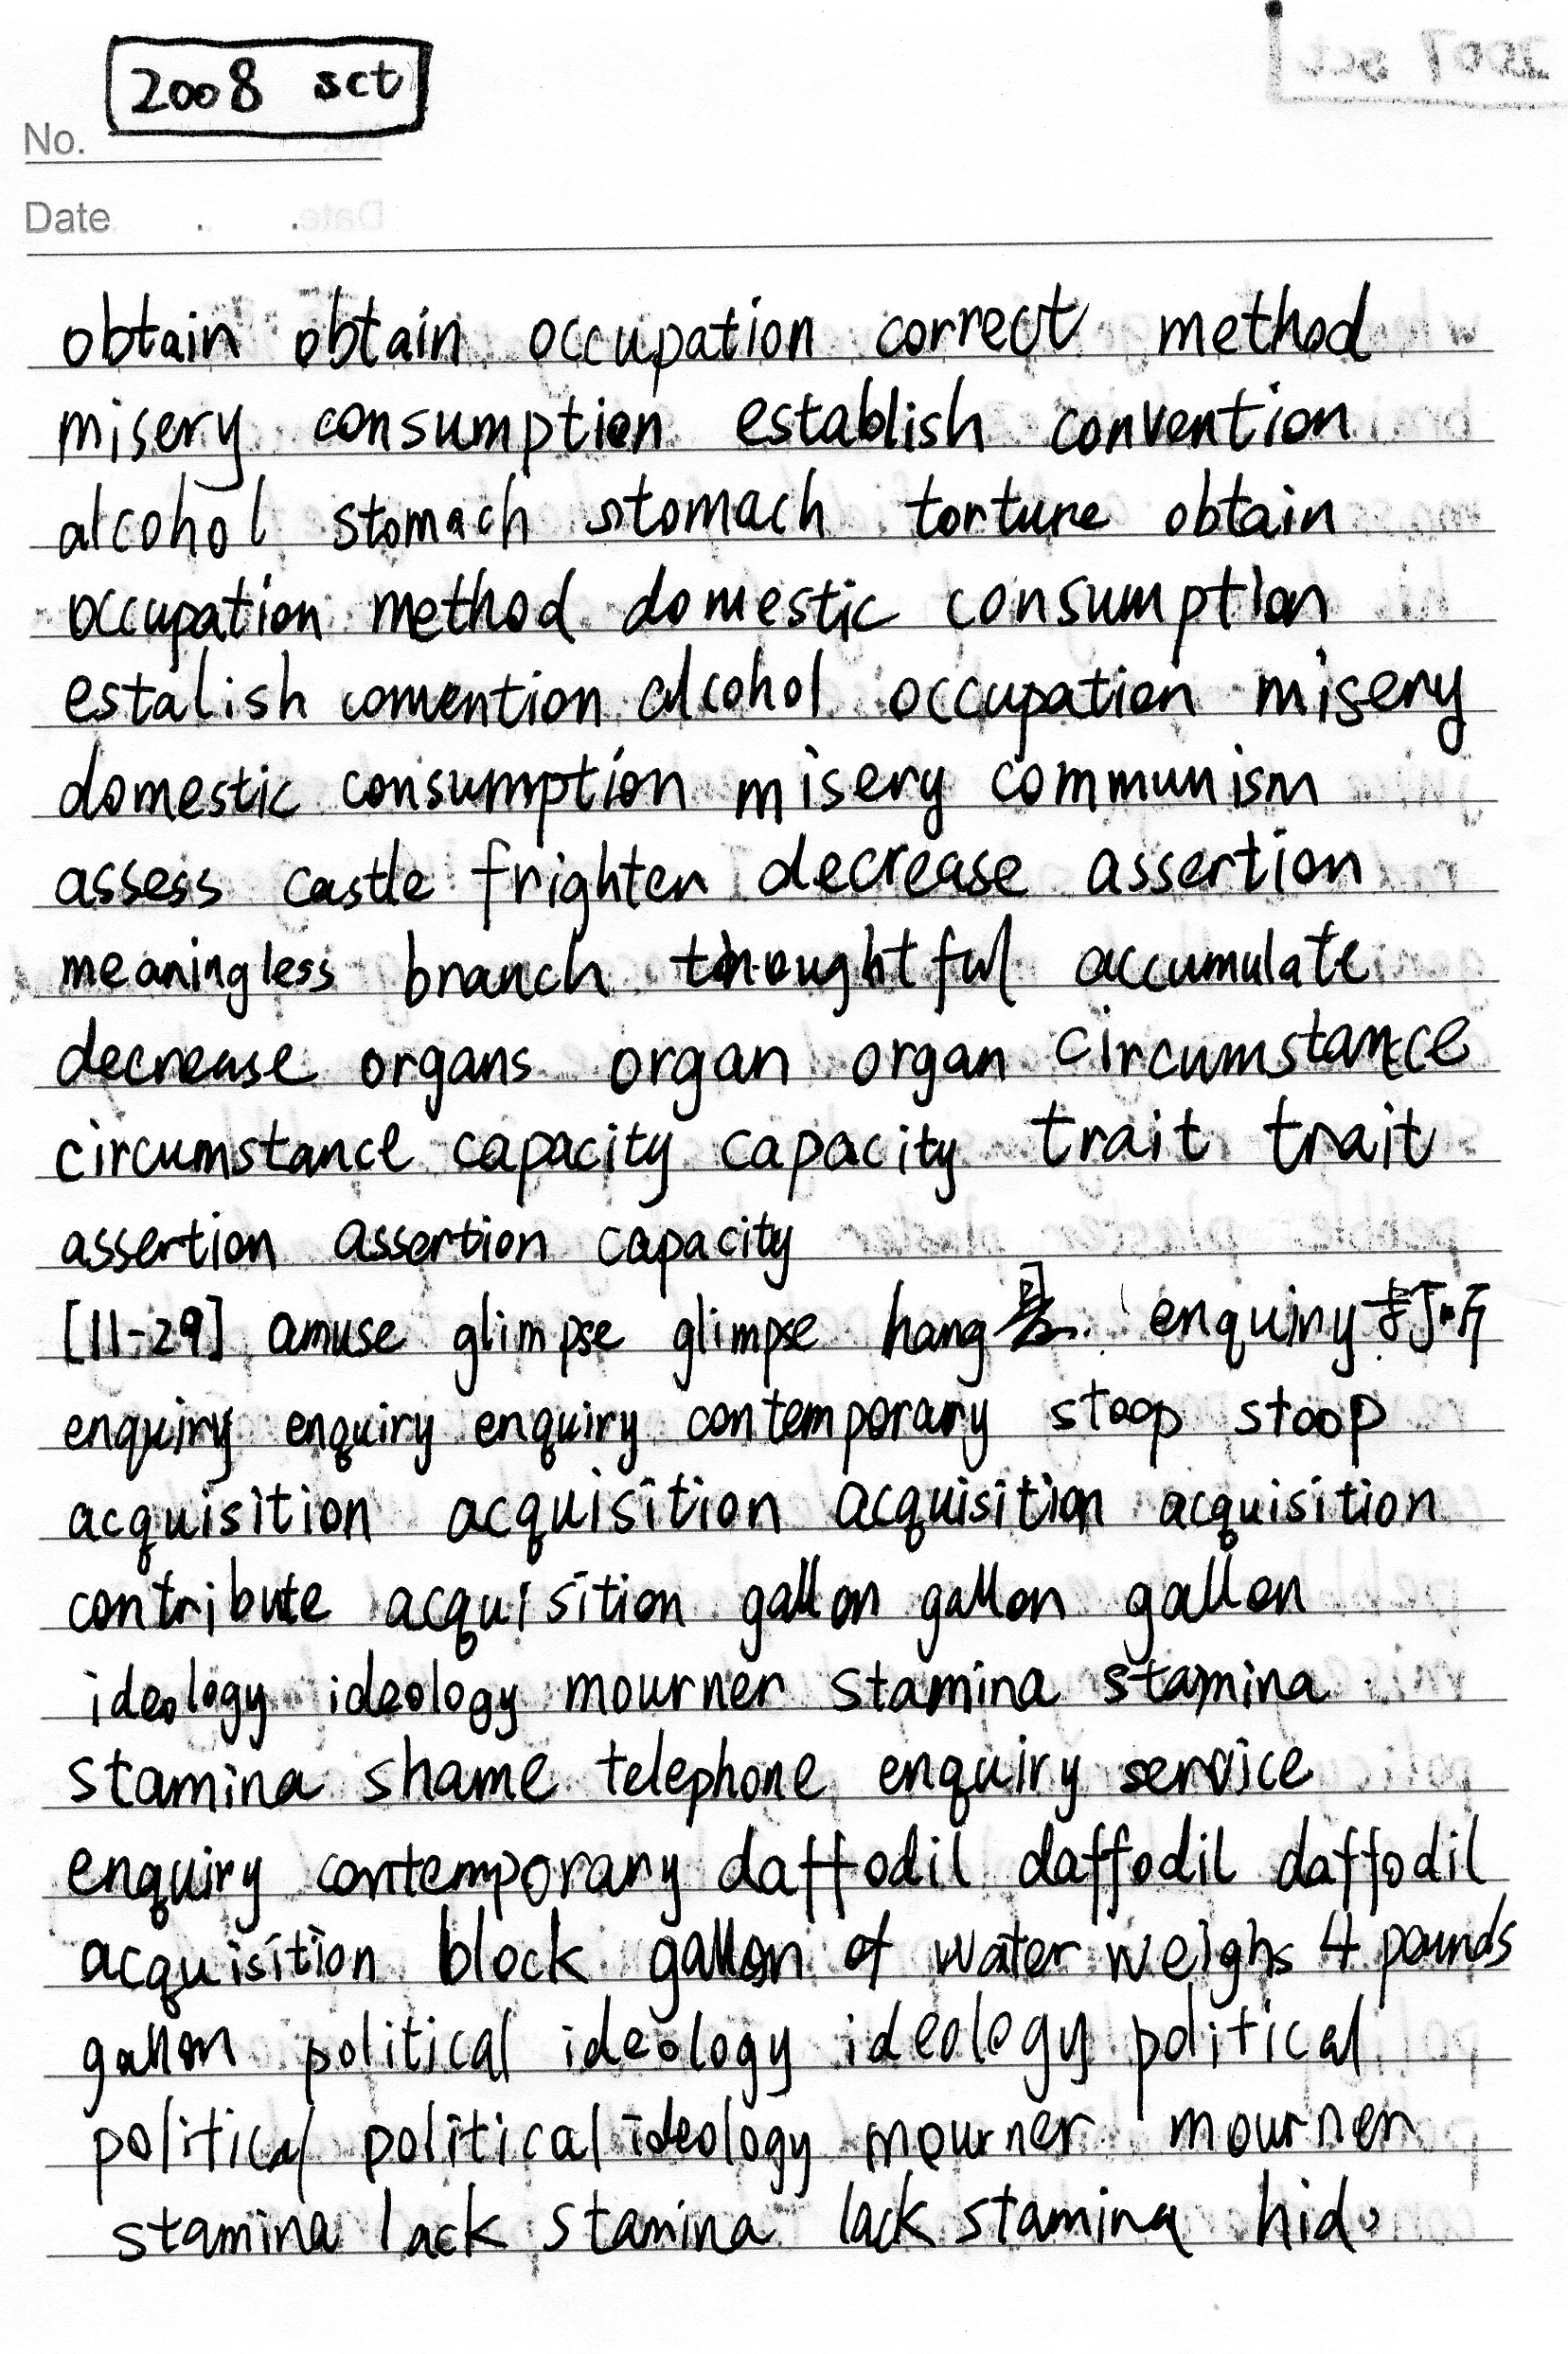 2008 sct
No.
Date . .
obtain obtain occupation correct method
misery consumption establish convention
alcohol stomach stomach torture obtain
occupation method domestic consumption
estalish convention alcohol occupation misery
domestic consumption misery communism
assess castle frighten decrease assertion
meaningless branch thoughtful accumulate
decrease organs organ organ circumstance
circumstance capacity capacity trait trait
assertion assertion capacity
[11-29] amuse glimpse glimpse hang enquiry
enquiry enquiry enquiry contemporary stoop stoop
acquisition acquisition acquisition acquisition
contribute acquisition gallon gallon gallon
ideology ideology mourner stamina stamina
stamina shame telephone enquiry service
enquiry contemporary daffodil daffodil daffodil
acquisition block gallon of water weighs 4 pounds
gallon political ideology ideology political
political political ideology mourner mourner
stamina lack stamina lack stamina